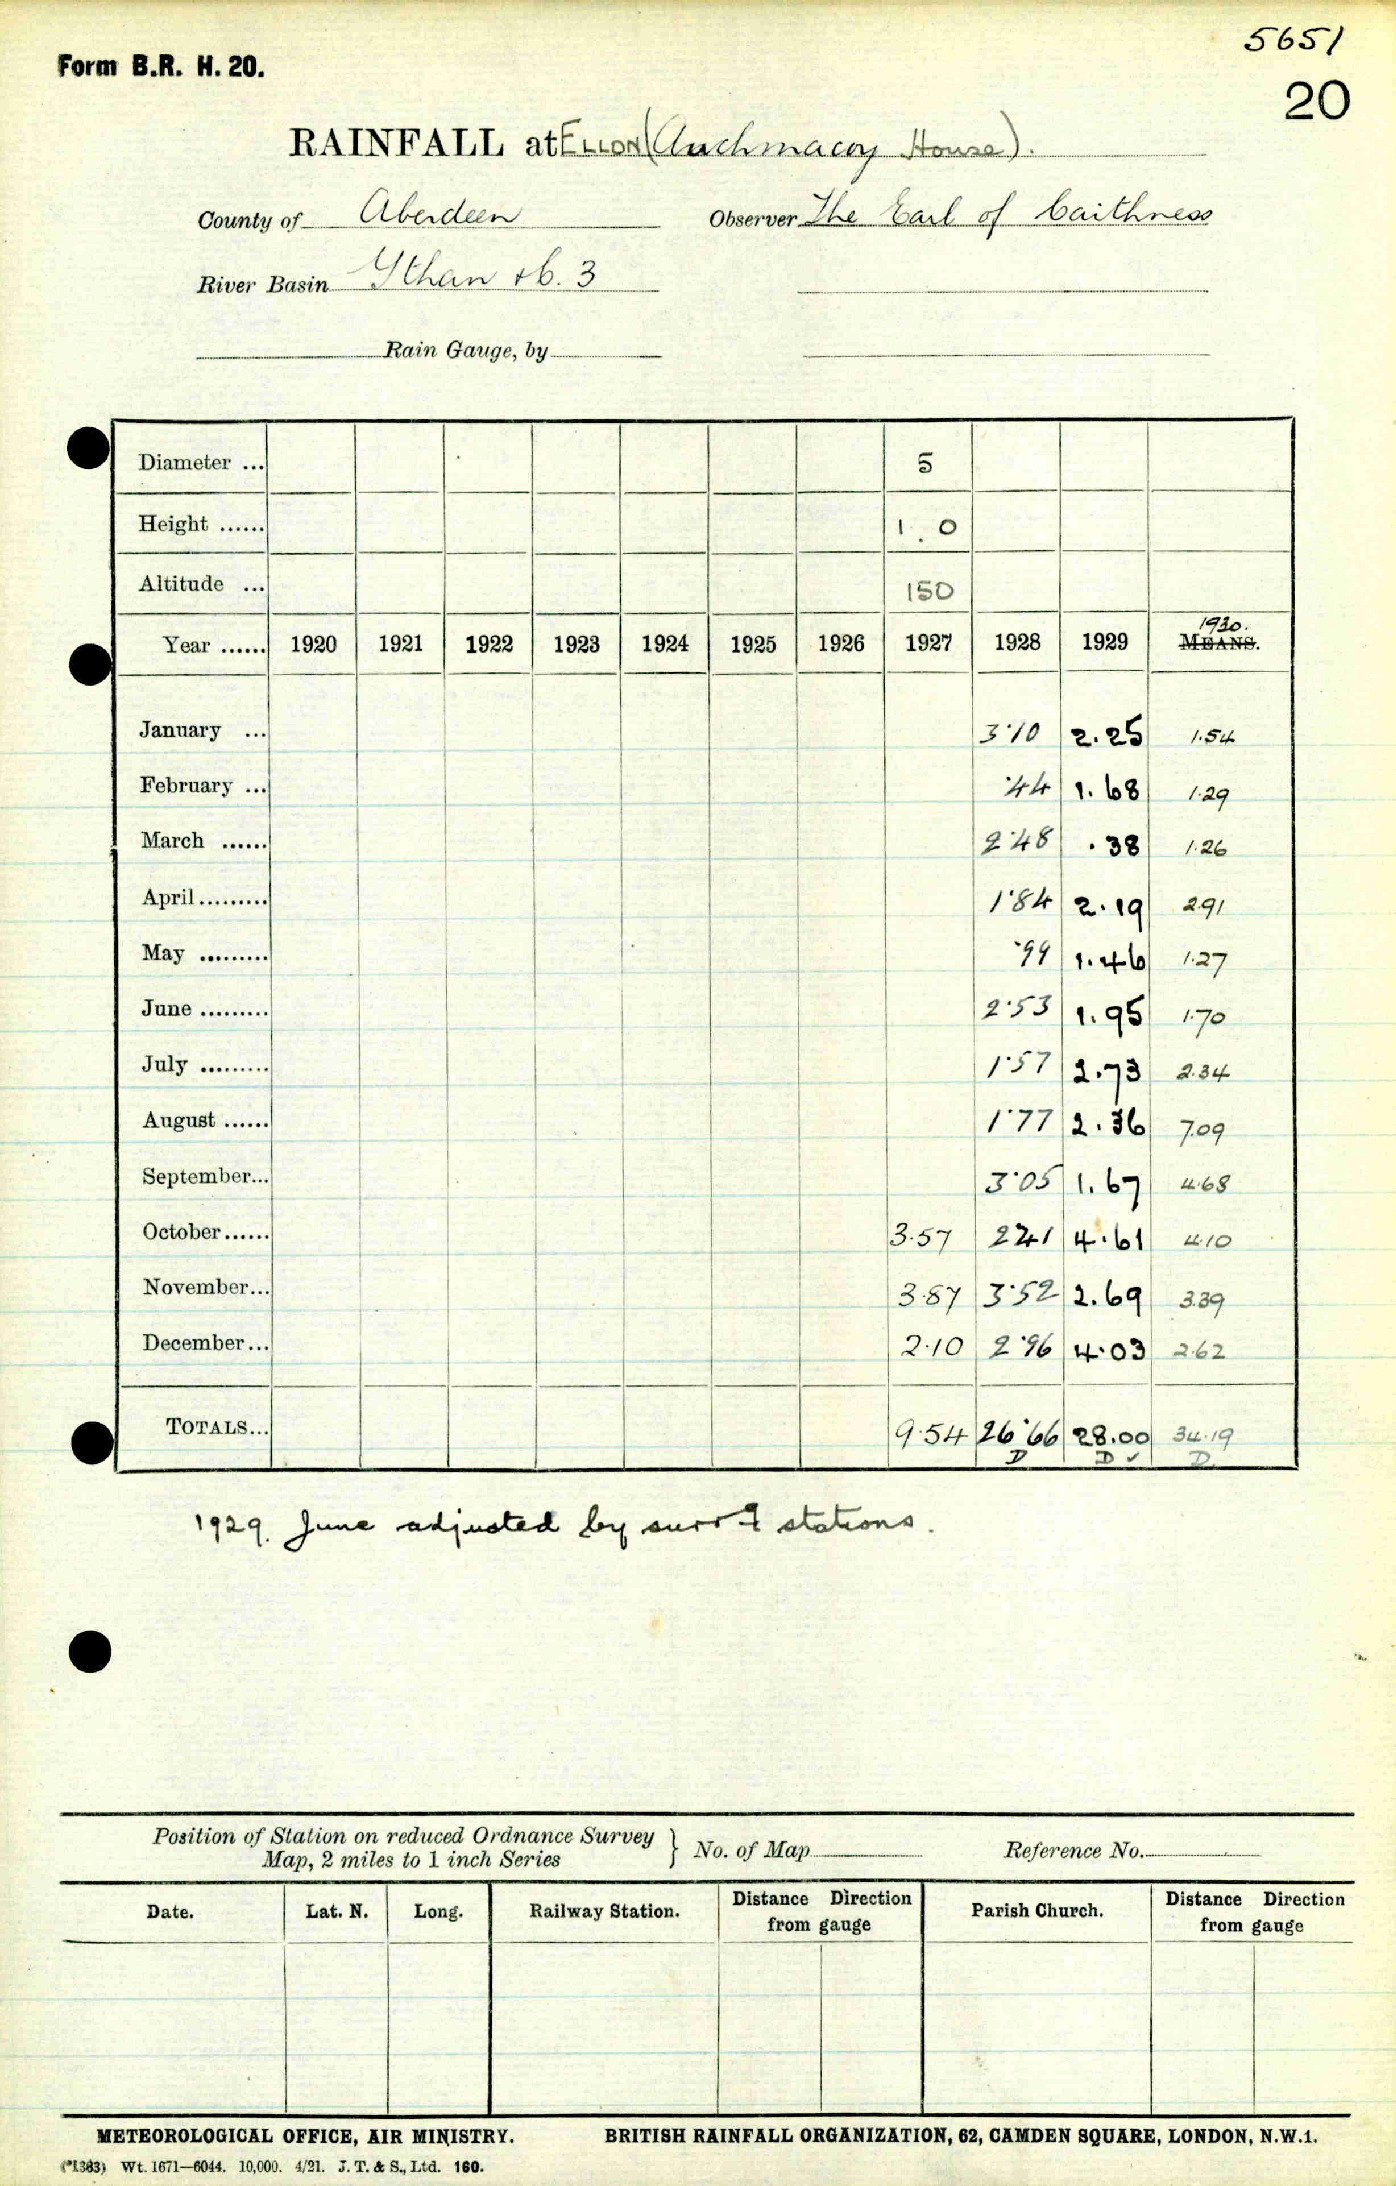 5651
Form B.R. H. 20.
20
RAINFALL at ELLON (Auchmacoy House).
County of Aberdeen Observer The Earl of Caithness
River Basin Ythan &c. 3
Rain Gauge, by
Diameter ... 5
Height ...... 1.0
Altitude ... 150
1930.
Year ...... 1920 1921 1922 1923 1924 1925 1926 1927 1928 1929 MEANS.
January ... 3·10 2.25 1.54
February ... ·44 1.68 1.29
March ...... 2·48 .38 1.26
April ......... 1·84 2.19 2.91
May ......... ·99 1.46 1.27
June ......... 2·53 1.95 1.70
July ......... 1·57 2.73 2.34
August ...... 1·77 2.36 7.09
September... 3·05 1.67 4.68
October...... 3.57 2·41 4.61 4.10
November... 3.87 3·52 2.69 3.39
December... 2.10 2·96 4.03 2.62
TOTALS... 9.54 26·66 28.00 34.19
D D ✓ D
1929. June adjusted by surrg stations.
Position of Station on reduced Ordnance Survey
Map, 2 miles to 1 inch Series } No. of Map Reference No.
Date. Lat. N. Long. Railway Station. Distance Direction from gauge Parish Church. Distance Direction from gauge
METEOROLOGICAL OFFICE, AIR MINISTRY. BRITISH RAINFALL ORGANIZATION, 62, CAMDEN SQUARE, LONDON, N.W.1.
(*1383) Wt. 1671—6044. 10,000. 4/21. J. T. & S., Ltd. 160.